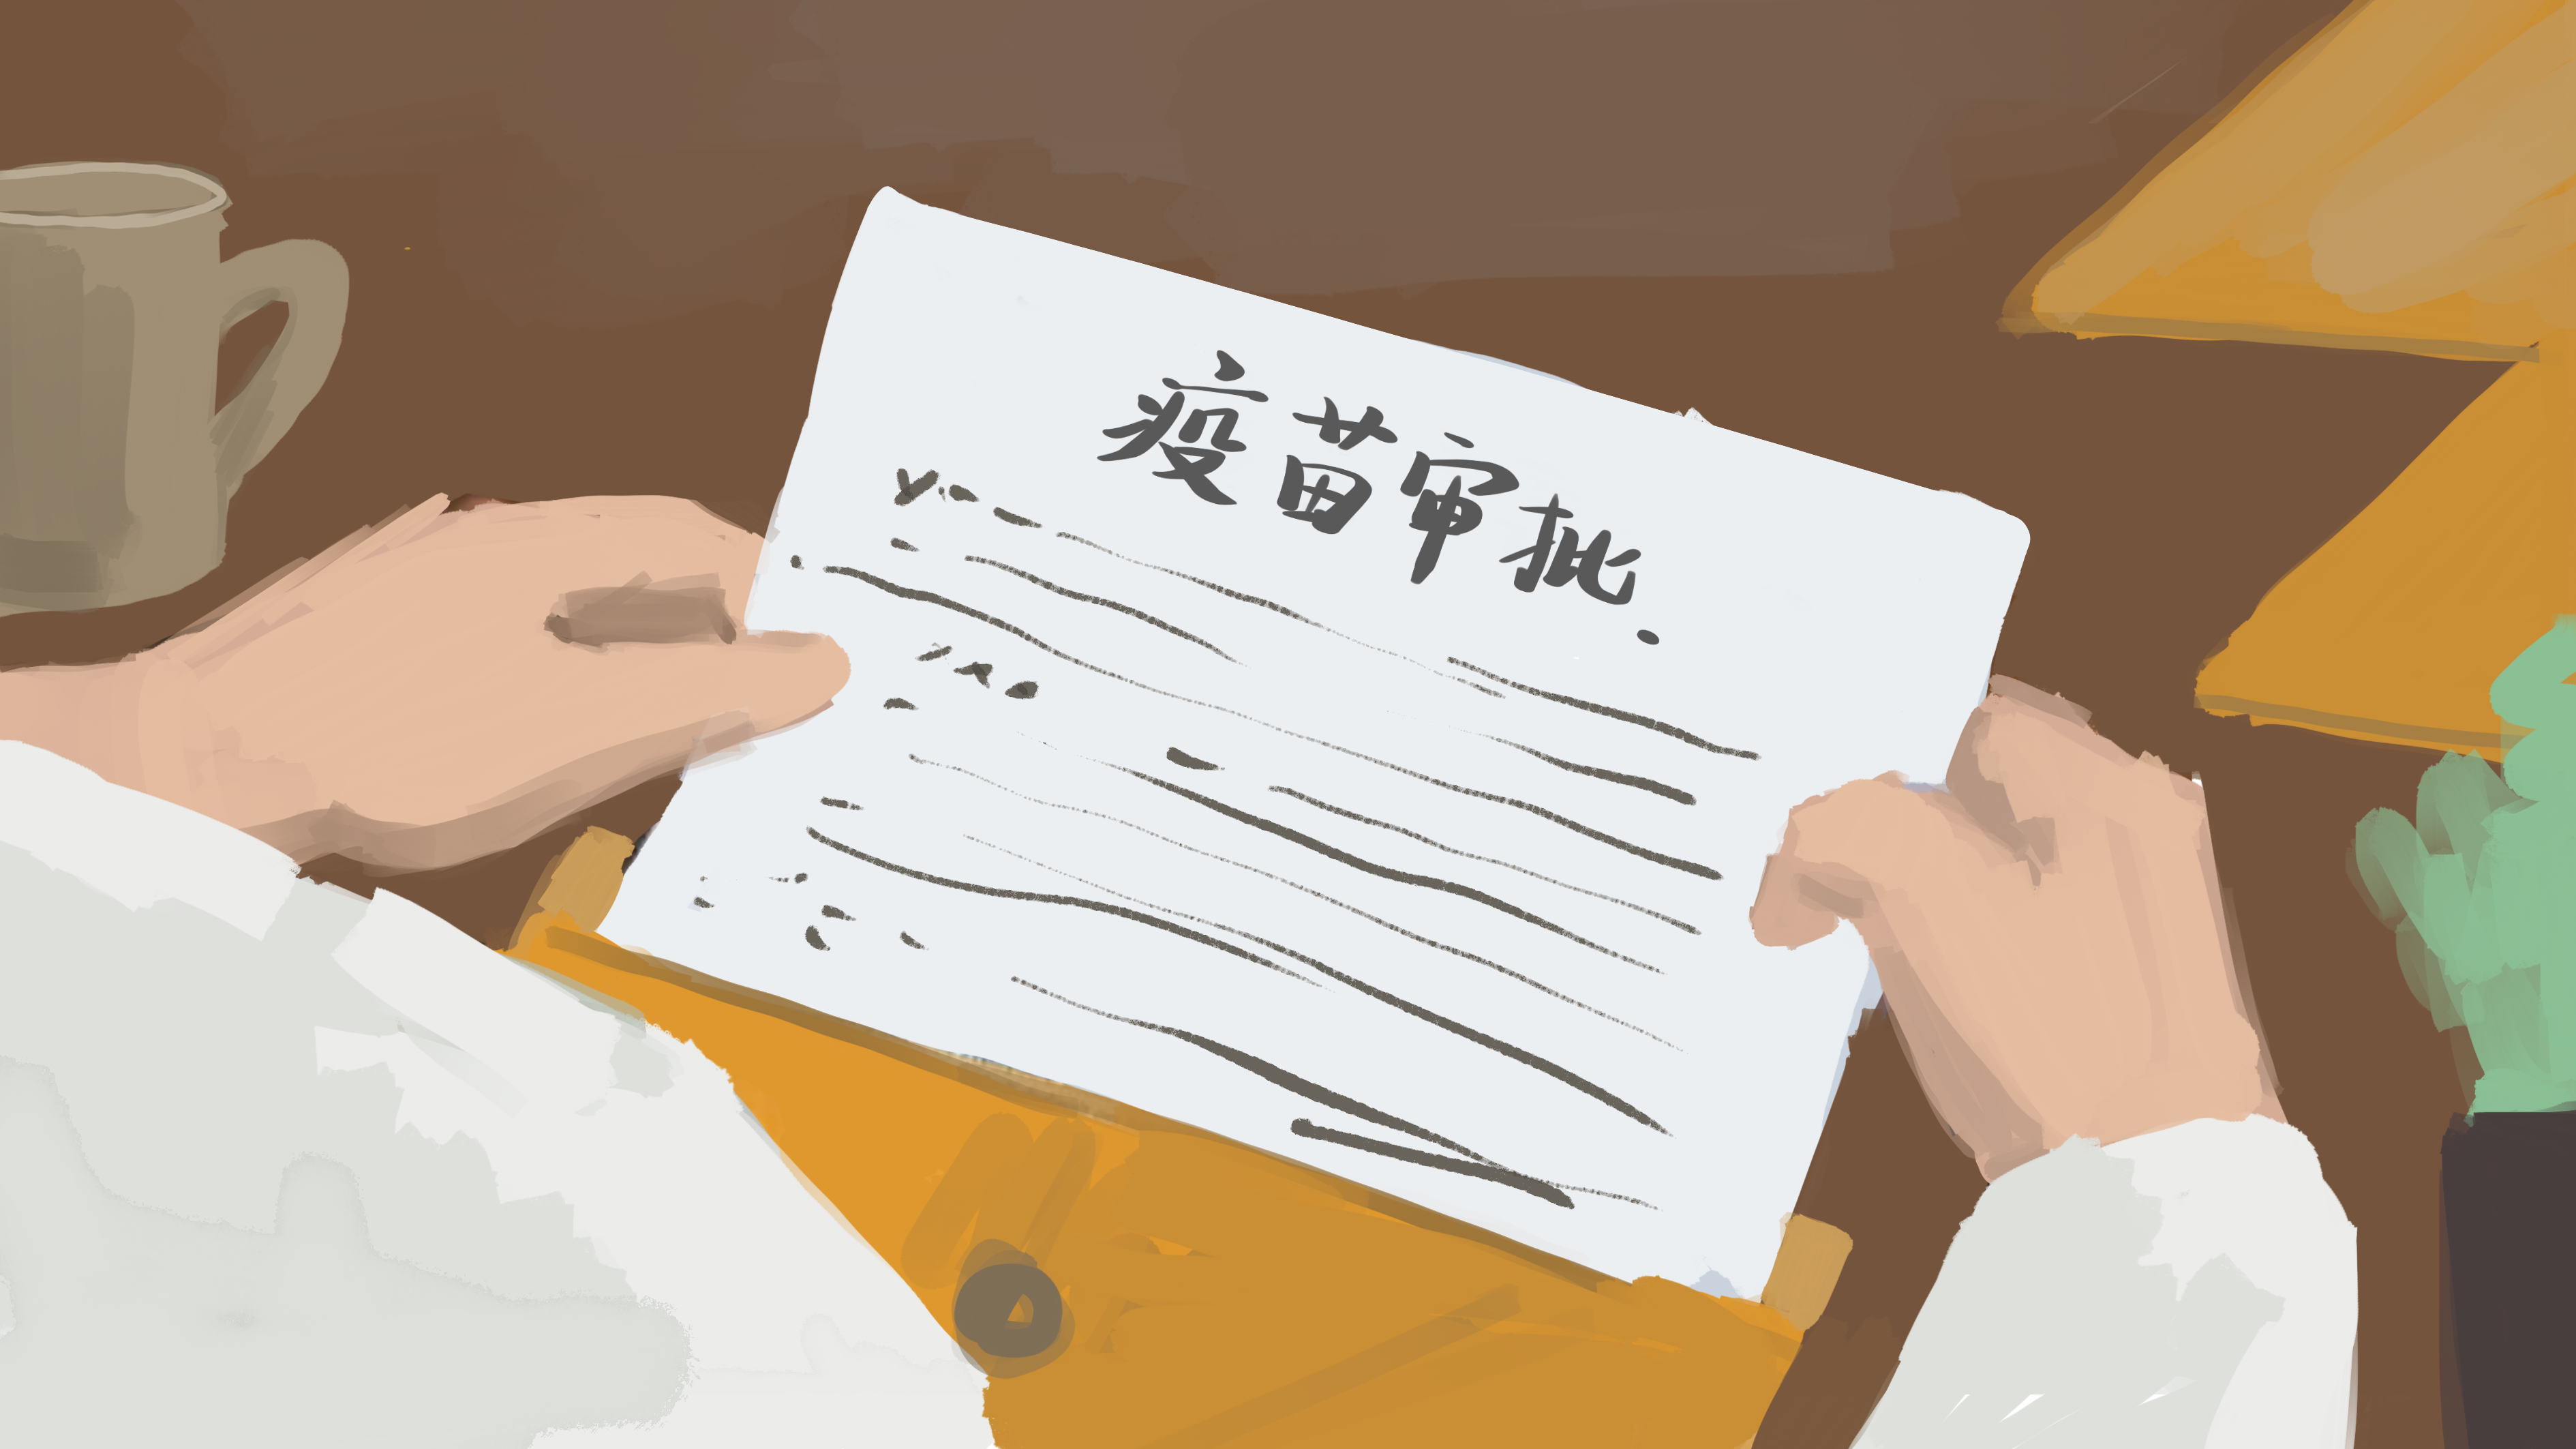 疫苗审批.